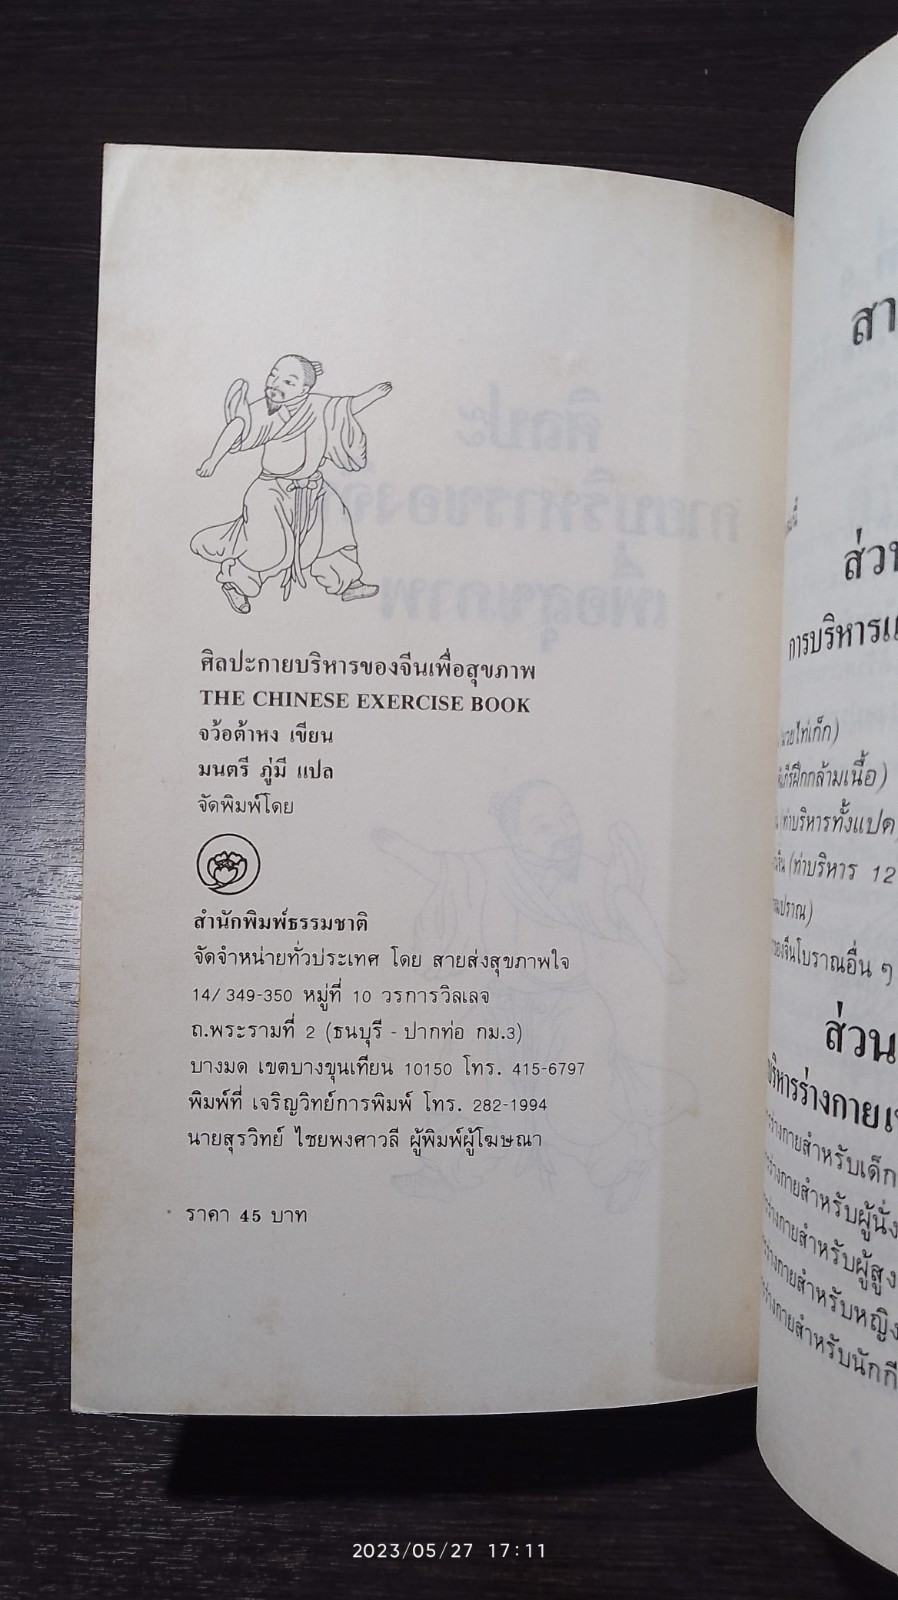 ศิลปะกายบริหารของจีนเพื่อสุขภาพ
THE CHINESE EXERCISE BOOK
จว้อต้าหง เขียน
มนตรี ภู่มี แปล
จัดพิมพ์โดย
สำนักพิมพ์ธรรมชาติ
จัดจำหน่ายทั่วประเทศ โดย สายส่งสุขภาพใจ
14/349-350 หมู่ที่ 10 วรการวิลเลจ
ถ.พระรามที่ 2 (ธนบุรี - ปากท่อ กม.3)
บางมด เขตบางขุนเทียน 10150 โทร. 415-6797
พิมพ์ที่ เจริญวิทย์การพิมพ์ โทร. 282-1994
นายสุรวิทย์ ไชยพงศาวลี ผู้พิมพ์ผู้โฆษณา
ราคา 45 บาท
สา
ส่ว
การบริหารแ
ฝึกกล้ามเนื้อ)
(ท่าบริหารทั้งแปด)
(ท่าบริหาร 12
ของจีนโบราณอื่น ๆ
ส่วน
บริหารร่างกายเ
ร่างกายสำหรับเด็ก
ร่างกายสำหรับผู้นั่ง
ร่างกายสำหรับผู้สูง
ร่างกายสำหรับหญิง
ร่างกายสำหรับนักกี
2023/05/27 17:11